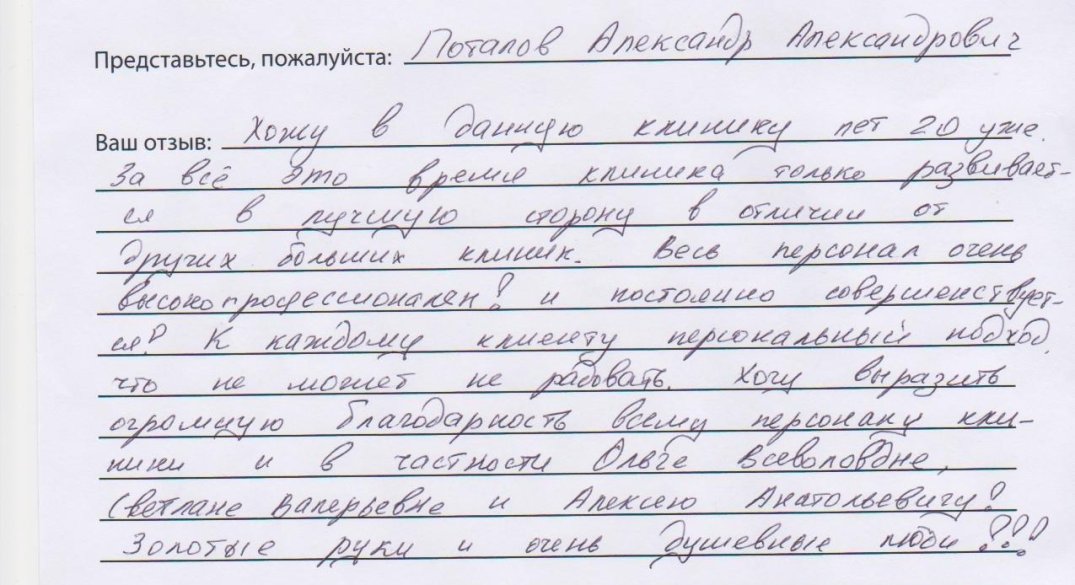 Представьтесь, пожалуйста: Потапов Александр Александрович
Ваш отзыв: Хожу в данную клинику лет 20 уже.
За всё это время клиника только развивает-
ся в лучшую сторону в отличии от
других больших клиник. Весь персонал очень
высокопрофессионален! и постоянно совершенствует-
ся! К каждому клиенту персональный подход,
что не может не радовать. Хочу выразить
огромную благодарность всему персоналу кли-
ники и в частности Ольге Всеволовдне,
Светлане Валерьевне и Алексею Анатольевичу!
Золотые руки и очень душевные люди!!!